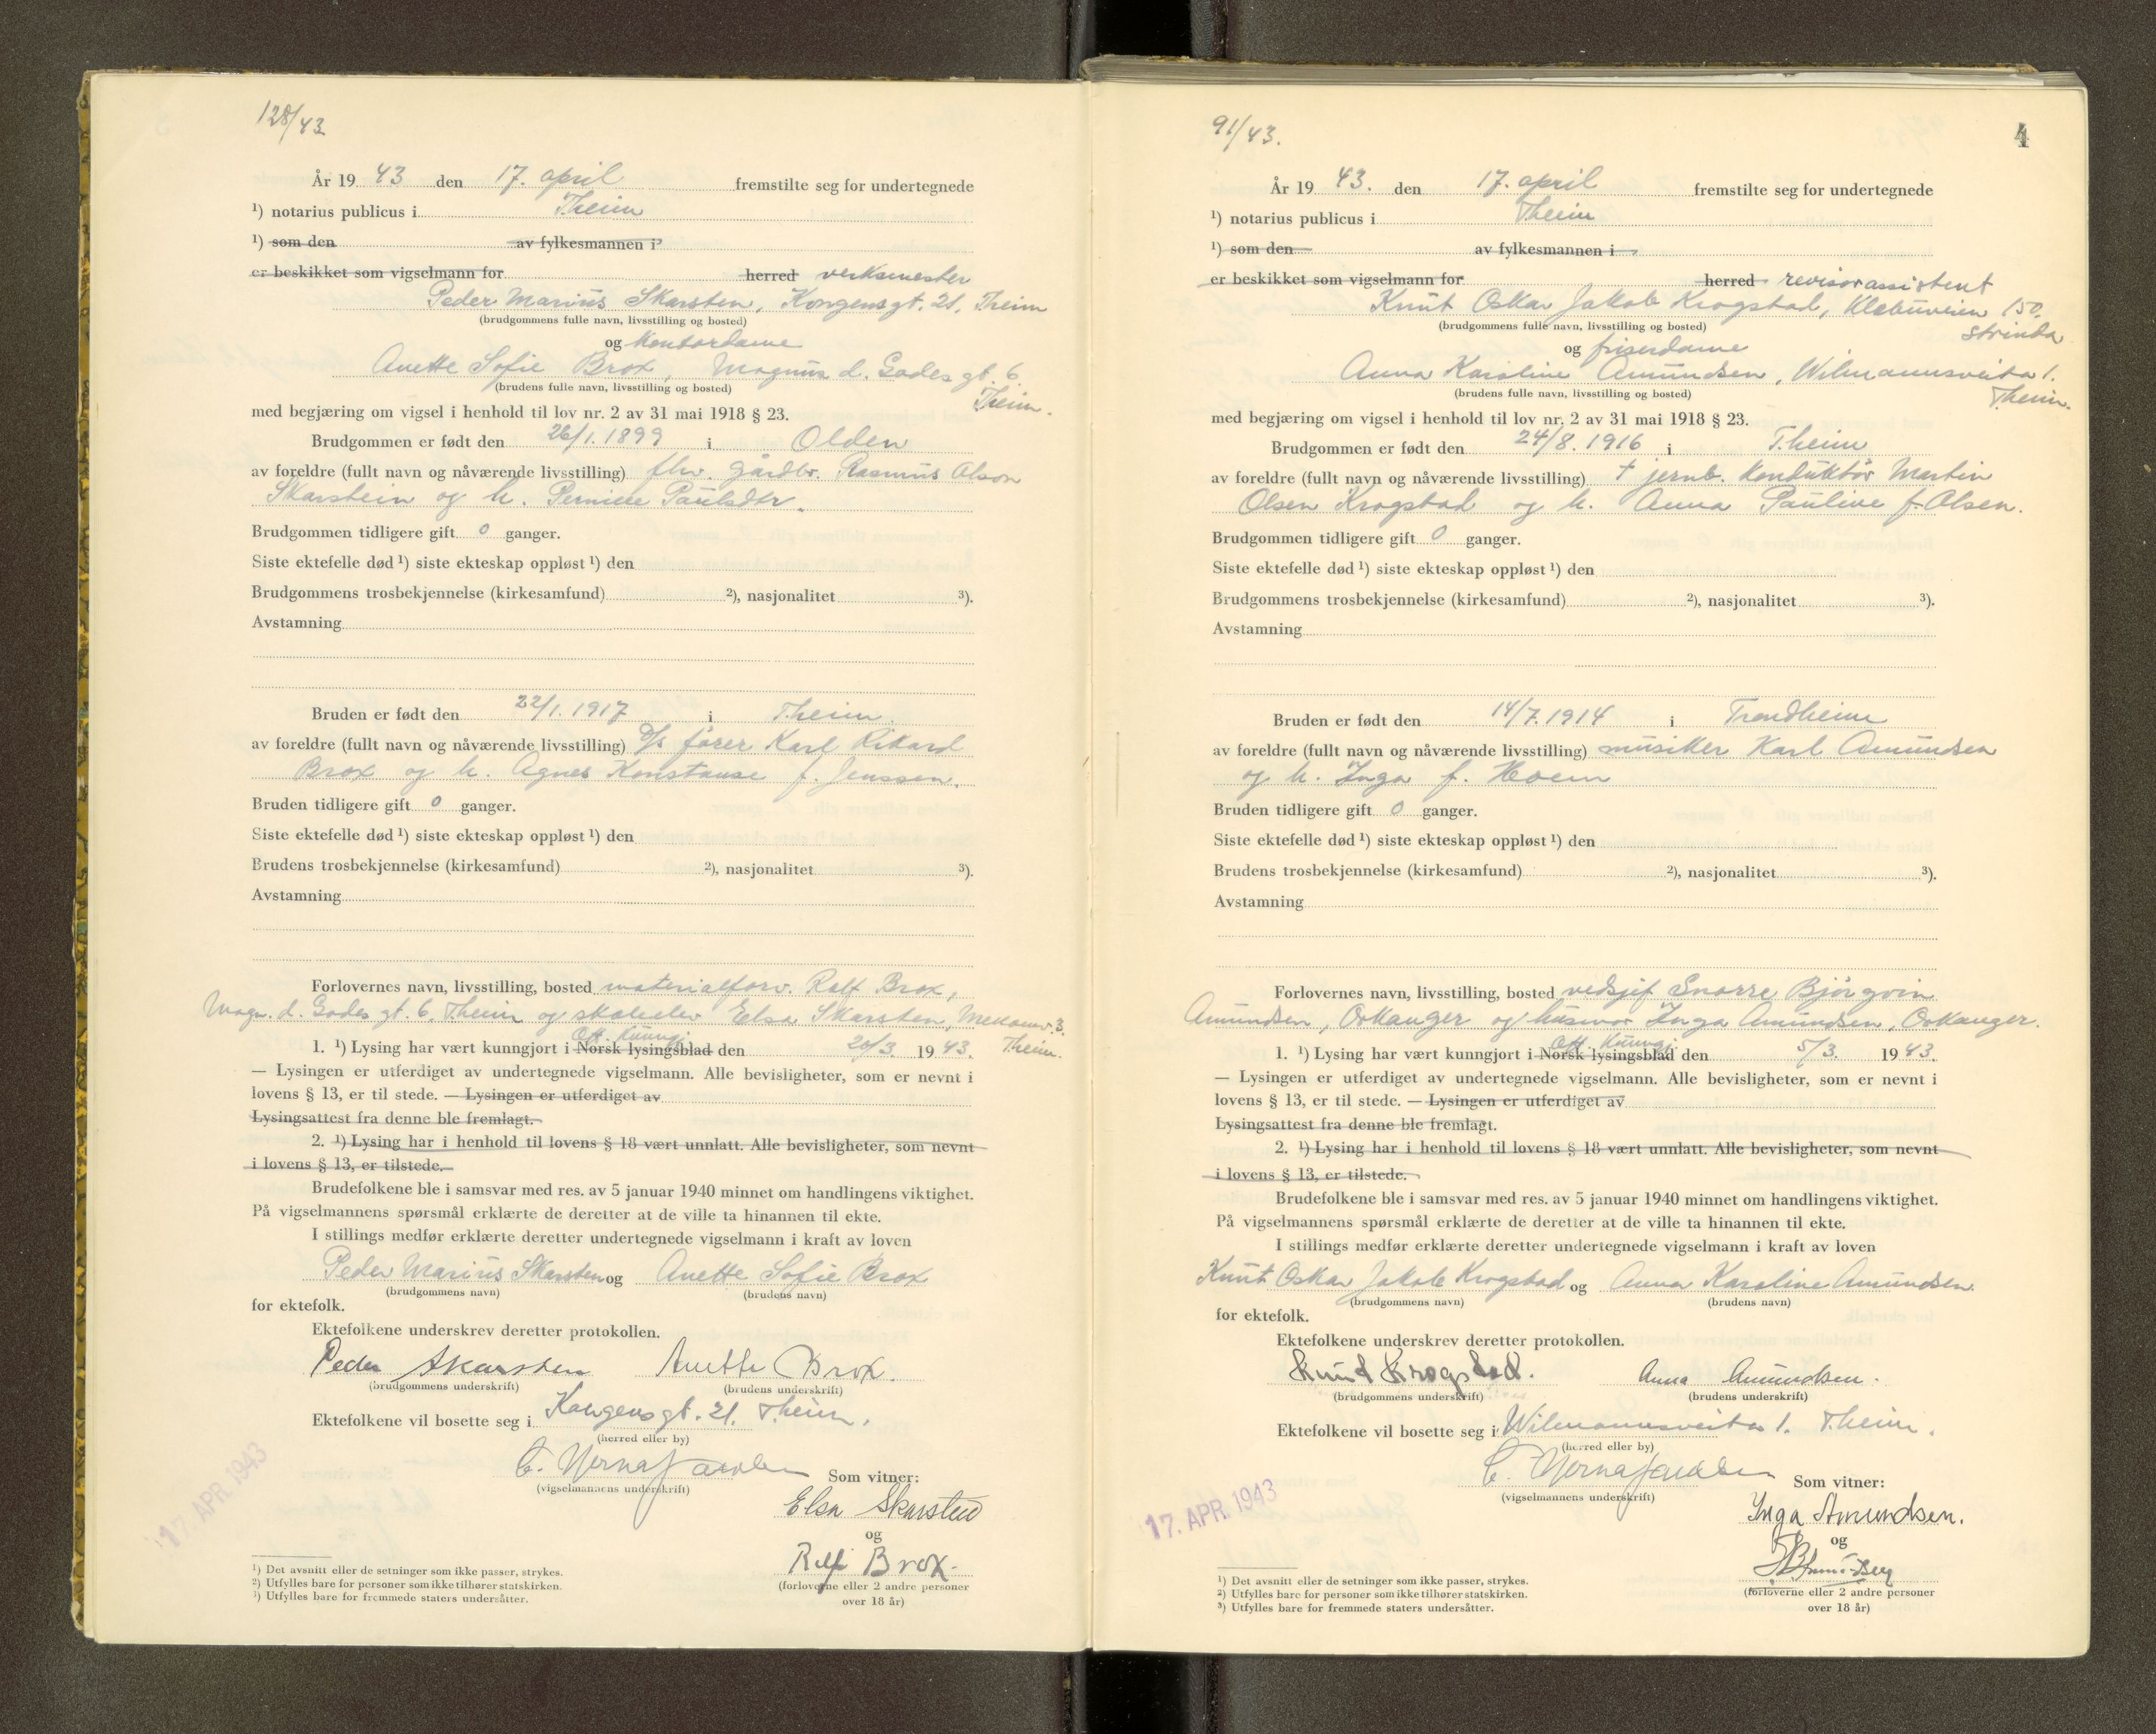 128/43
År 19 43 den 17. april fremstilte seg for undertegnede
¹) notarius publicus i Theim
¹) som den av fylkesmannen i
er beskikket som vigselmann for herred verksmester
Peder Marius Skarsten, Kongensgt. 21, Theim
(brudgommens fulle navn, livsstilling og bosted)
og kontordame
Anette Sofie Brox, Magnus d. Godes gt. 6
(brudens fulle navn, livsstilling og bosted) Theim.
med begjæring om vigsel i henhold til lov nr. 2 av 31 mai 1918 § 23.
Brudgommen er født den 26/1. 1899 i Olden
av foreldre (fullt navn og nåværende livsstilling) fhv. gårdbr. Rasmus Olson
Skarstein og h. Perniele Paulsdtr.
Brudgommen tidligere gift 0 ganger.
Siste ektefelle død ¹) siste ekteskap oppløst ¹) den
Brudgommens trosbekjennelse (kirkesamfund) ²), nasjonalitet ³).
Avstamning
Bruden er født den 22/1. 1917 i Theim.
av foreldre (fullt navn og nåværende livsstilling) D/s fører Karl Rikard
Brox og h. Agnes Konstanse f. Jenssen.
Bruden tidligere gift 0 ganger.
Siste ektefelle død ¹) siste ekteskap oppløst ¹) den
Brudens trosbekjennelse (kirkesamfund) ²), nasjonalitet ³).
Avstamning
Forlovernes navn, livsstilling, bosted materialforv. Ralf Brox,
Magn. d. Godes gt. 6, Theim og skoleelev Elsa Skarsten, 3.
Off. kunngj.
1. ¹) Lysing har vært kunngjort i Norsk lysingsblad den 20/3. 1943. Theim.
— Lysingen er utferdiget av undertegnede vigselmann. Alle bevisligheter, som er nevnt i
lovens § 13, er til stede. — Lysingen er utferdiget av
Lysingsattest fra denne ble fremlagt.
2. ¹) Lysing har i henhold til lovens § 18 vært unnlatt. Alle bevisligheter, som nevnt
i lovens § 13, er tilstede.
Brudefolkene ble i samsvar med res. av 5 januar 1940 minnet om handlingens viktighet.
På vigselmannens spørsmål erklærte de deretter at de ville ta hinannen til ekte.
I stillings medfør erklærte deretter undertegnede vigselmann i kraft av loven
Peder Marius Skarsten og Anette Sofie Brox
(brudgommens navn) (brudens navn)
for ektefolk.
Ektefolkene underskrev deretter protokollen.
Peder Skarsten Anette Brox.
(brudgommens underskrift) (brudens underskrift)
Ektefolkene vil bosette seg i Kongensgt. 21. Theim.
(herred eller by)
17. APR. 1943
(vigselmannens underskrift) Som vitner:
Elsa Skarsten
og
Ralf Brox.
(forloverne eller 2 andre personer
over 18 år)
¹) Det avsnitt eller de setninger som ikke passer, strykes.
²) Utfylles bare for personer som ikke tilhører statskirken.
³) Utfylles bare for fremmede staters undersåtter.
91/43.
4
År 19 43. den 17. april fremstilte seg for undertegnede
¹) notarius publicus i Theim
¹) som den av fylkesmannen i
er beskikket som vigselmann for herred revisorassistent
Knut Oskar Jakob Krogstad, Klæbuveien 150,
(brudgommens fulle navn, livsstilling og bosted) Strinda
og friserdame
Anna Karoline Amundsen, Wilmannsveita 1.
(brudens fulle navn, livsstilling og bosted) Theim.
med begjæring om vigsel i henhold til lov nr. 2 av 31 mai 1918 § 23.
Brudgommen er født den 24/8. 1916 i Theim
av foreldre (fullt navn og nåværende livsstilling) † jernb. konduktør Martin
Olsen Krogstad og h. Anna Pauline f. Olsen.
Brudgommen tidligere gift 0 ganger.
Siste ektefelle død ¹) siste ekteskap oppløst ¹) den
Brudgommens trosbekjennelse (kirkesamfund) ²), nasjonalitet ³).
Avstamning
Bruden er født den 14/7. 1914 i Trondheim
av foreldre (fullt navn og nåværende livsstilling) musiker Karl Amundsen
og h. Inga f. Hoem
Bruden tidligere gift 0 ganger.
Siste ektefelle død ¹) siste ekteskap oppløst ¹) den
Brudens trosbekjennelse (kirkesamfund) ²), nasjonalitet ³).
Avstamning
Forlovernes navn, livsstilling, bosted vedsjef Snorre Bjørgvin
Amundsen, Orkanger og husmor Inga Amundsen, Orkanger.
Off. kunngj.
1. ¹) Lysing har vært kunngjort i Norsk lysingsblad den 5/3. 1943.
— Lysingen er utferdiget av undertegnede vigselmann. Alle bevisligheter, som er nevnt i
lovens § 13, er til stede. — Lysingen er utferdiget av
Lysingsattest fra denne ble fremlagt.
2. ¹) Lysing har i henhold til lovens § 18 vært unnlatt. Alle bevisligheter, som nevnt
i lovens § 13, er tilstede.
Brudefolkene ble i samsvar med res. av 5 januar 1940 minnet om handlingens viktighet.
På vigselmannens spørsmål erklærte de deretter at de ville ta hinannen til ekte.
I stillings medfør erklærte deretter undertegnede vigselmann i kraft av loven
Knut Oskar Jakob Krogstad og Anna Karoline Amundsen.
(brudgommens navn) (brudens navn)
for ektefolk.
Ektefolkene underskrev deretter protokollen.
Knud Krogstad. Anna Amundsen.
(brudgommens underskrift) (brudens underskrift)
Ektefolkene vil bosette seg i Wilmannsveita 1. Theim.
(herred eller by)
17. APR. 1943
(vigselmannens underskrift) Som vitner:
Inga Amundsen.
og
(forloverne eller 2 andre personer
over 18 år)
¹) Det avsnitt eller de setninger som ikke passer, strykes.
²) Utfylles bare for personer som ikke tilhører statskirken.
³) Utfylles bare for fremmede staters undersåtter.